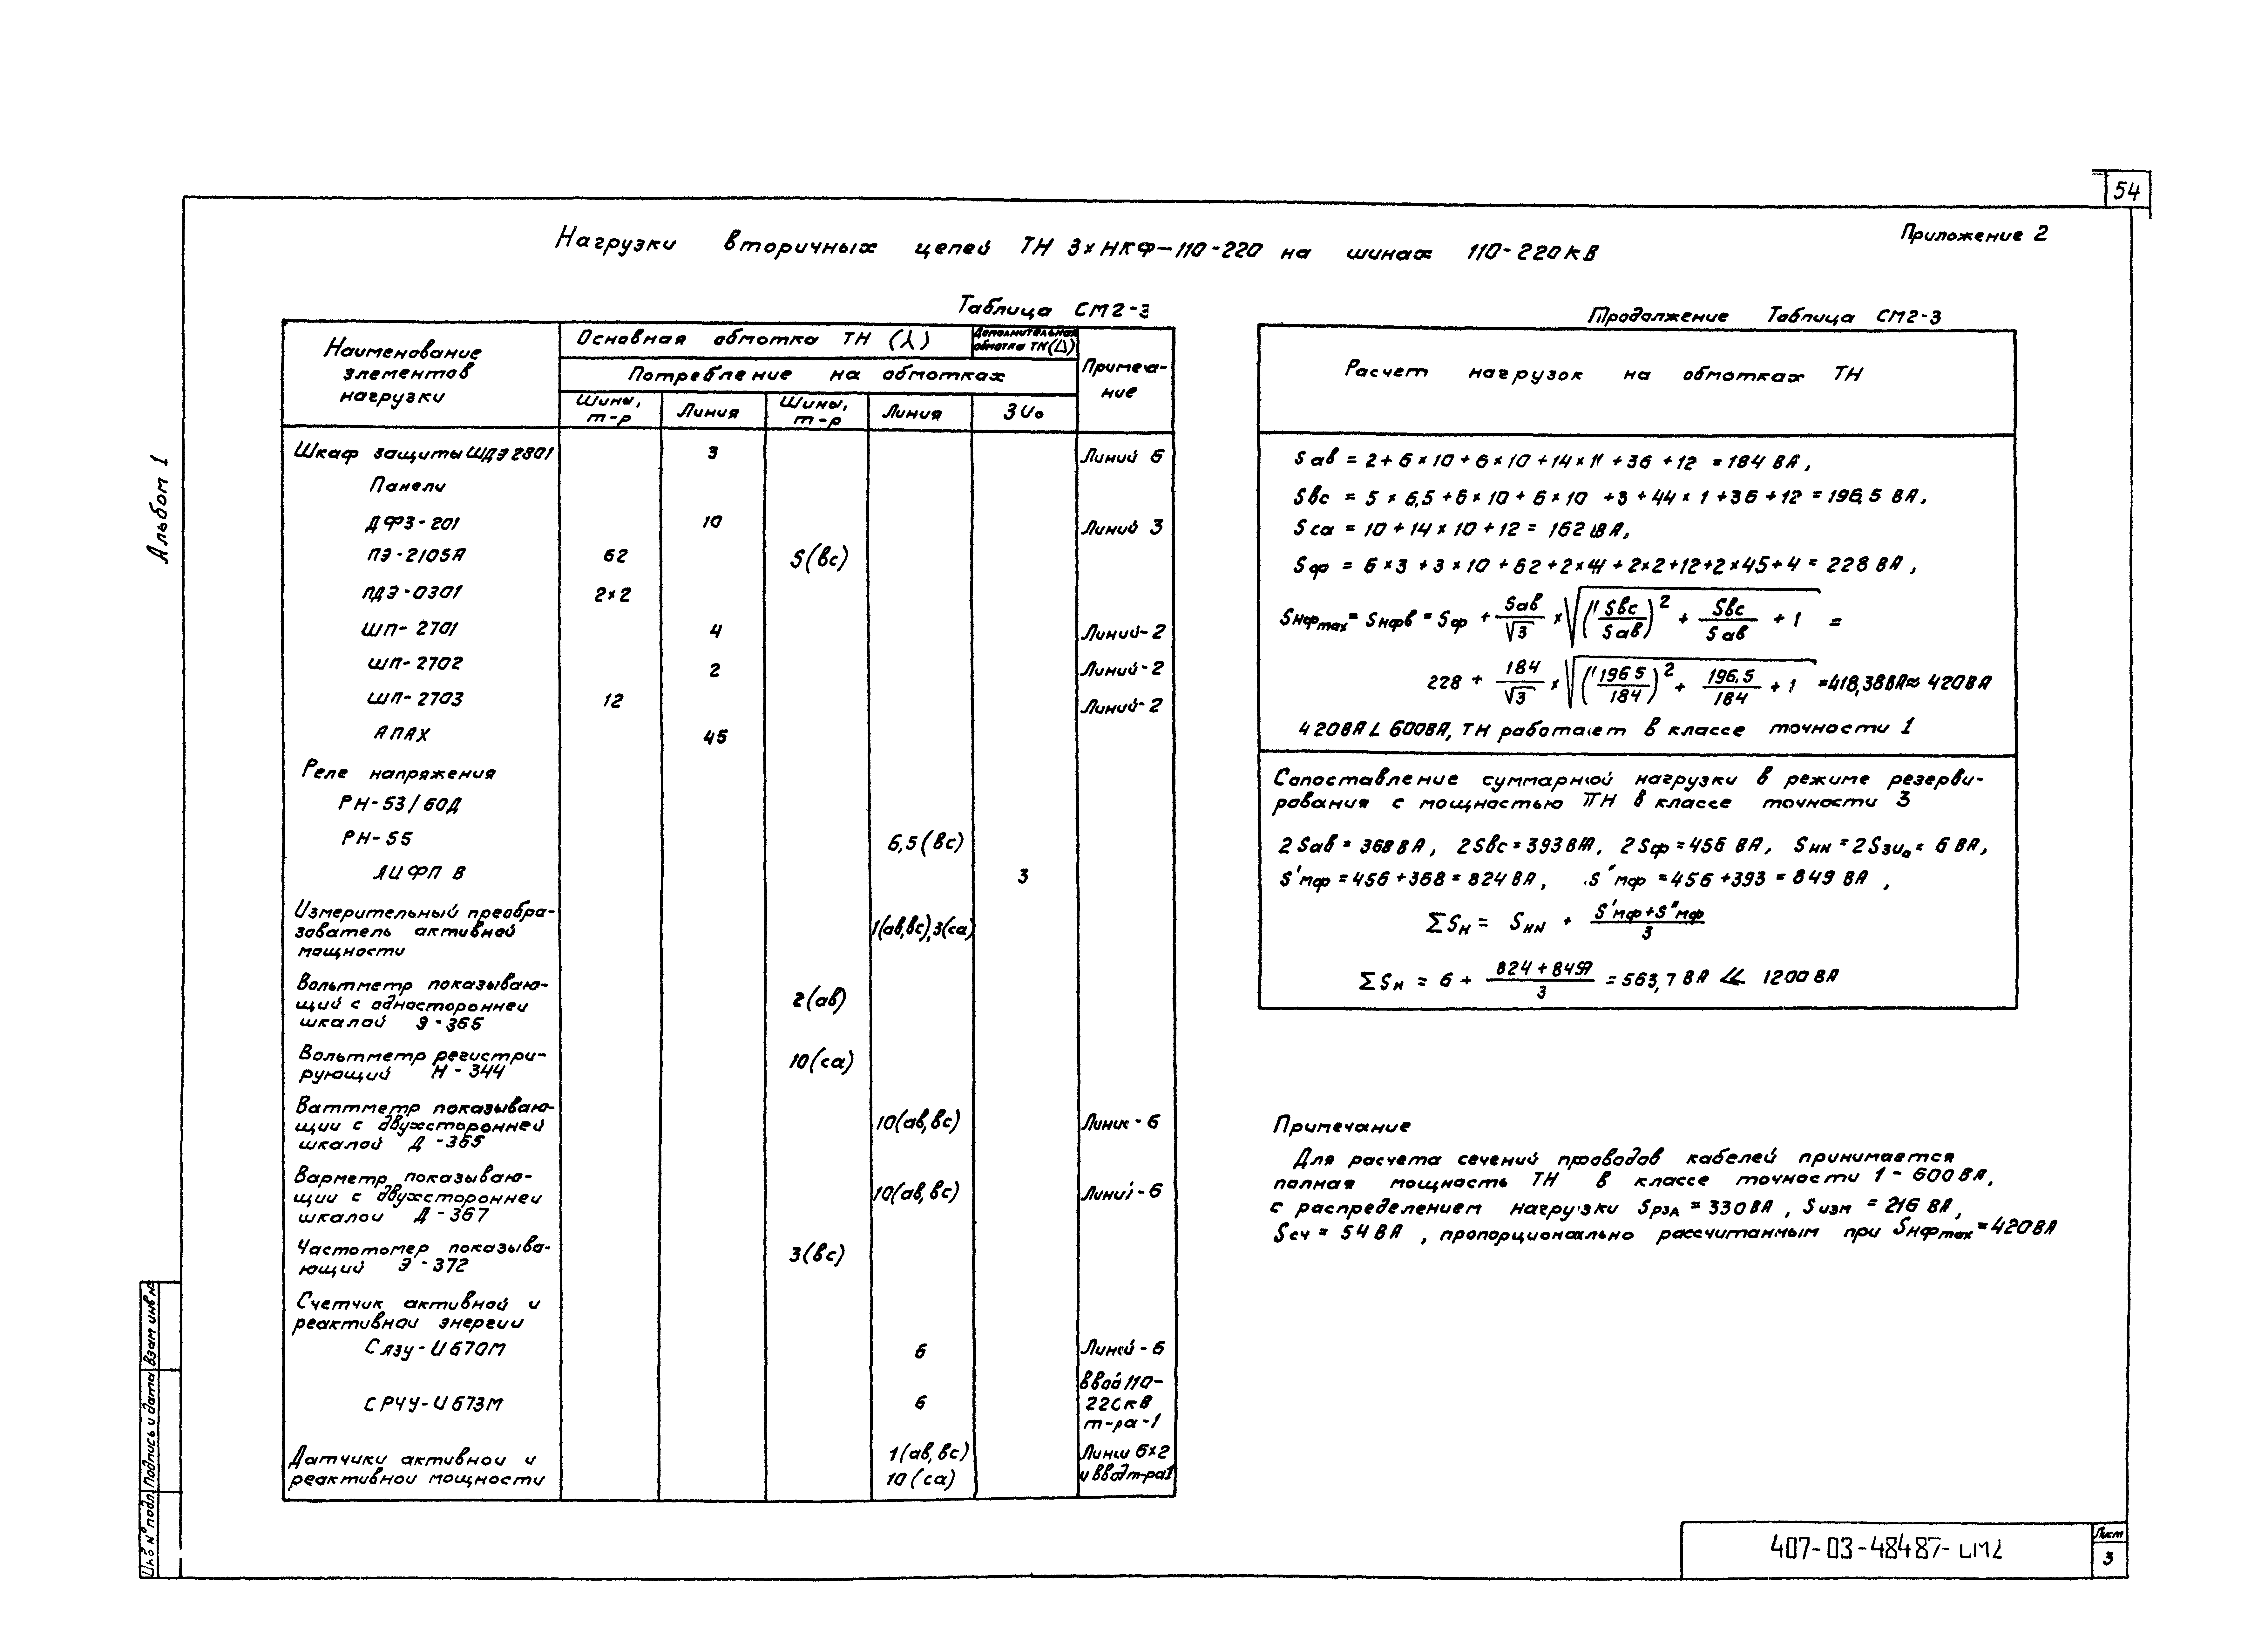 54
Приложение 2
Нагрузки вторичных цепей ТН 3×НКФ-110-220 на шинах 110-220кВ
Альбом 1
Таблица СМ2-3
Наименование элементов нагрузки
Основная обмотка ТН (⅄)
Дополнительная обмотка ТН(△)
Примеча-
ние
Потребление на обмотках
Шины, т-р
Линия
Шины, т-р
Линия
3U₀
Шкаф защиты ШДЭ 2801 3 Линий 6
Панели
ДФЗ-201 10 Линий 3
ПЭ-2105А 62 5(вс)
ПДЭ-0301 2×2
ШП-2701 4 Линий-2
ШП-2702 2 Линий-2
ШП-2703 12 Линий-2
АПАХ 45
Реле напряжения
РН-53/60Д
РН-55 6,5(вс)
ЛИФП В 3
Измерительный преобра-
зователь активной 1(ав,вс),3(са)
мощности
Вольтметр показываю-
щий с односторонней 2(ав)
шкалой Э-365
Вольтметр регистри- 10(са)
рующий Н-344
Ваттметр показываю-
щии с двухсторонней 10(ав,вс) Линис-6
шкалой Д-365
Варметр показываю-
щии с двухсторонней 10(ав,вс) Линий-6
шкалой Д-367
Частотомер показыва- 3(вс)
ющий Э-372
Счетчик активной и
реактивной энергии
САЗУ-И670М 6 Линий-6
СРЧУ-И673М 6 Ввод 110-
220кВ
т-ра-1
Датчики активнои и 1(ав,вс) Линии 6×2
реактивной мощности 10(са) и ввод т-ра1
Продолжение Таблица СМ2-3
Расчет нагрузок на обмотках ТН
Sав = 2+6×10+6×10+14×11+36+12 =184 ВА,
Sвс = 5×6,5+6×10+6×10+3+44×1+36+12=196,5 ВА,
Sса = 10+14×10+12= 162 ВА,
Sф = 6×3+3×10+62+2×4+2×2+12+2×45+4=228 ВА,
Sнфmax = Sнфв = Sф + Sав/√3 × √((Sвс/Sав)² + Sвс/Sав + 1) =
228 + 184/√3 × √((196 5/184)² + 196,5/184 + 1) =418,38ВА≈420ВА
420ВА∠600ВА, ТН работает в классе точности 1
Сопоставление суммарной нагрузки в режиме резерви-
рования с мощностью ТН в классе точности 3
2Sав = 368ВА, 2Sвс=393ВА, 2Sф=456 ВА, Sнн=2S3U₀= 6 ВА,
S'мф=456+368=824 ВА, S"мф =456+393=849 ВА,
ΣSн = Sнн + (S'мф+S"мф)/3
ΣSн = 6 + (824+849)/3 = 563,7 ВА ≪ 1200 ВА
Примечание
Для расчета сечений проводов кабелей принимается
полная мощность ТН в классе точности 1-600ВА,
с распределением нагрузки Sрзл =330ВА, Sизм =216 ВА,
Sсч = 54ВА, пропорционально рассчитанным при Sнфmax=420ВА
Взам инв.№
Подпись и дата
Инв № подл.
407-03-484 87- СМ2
Лист
3